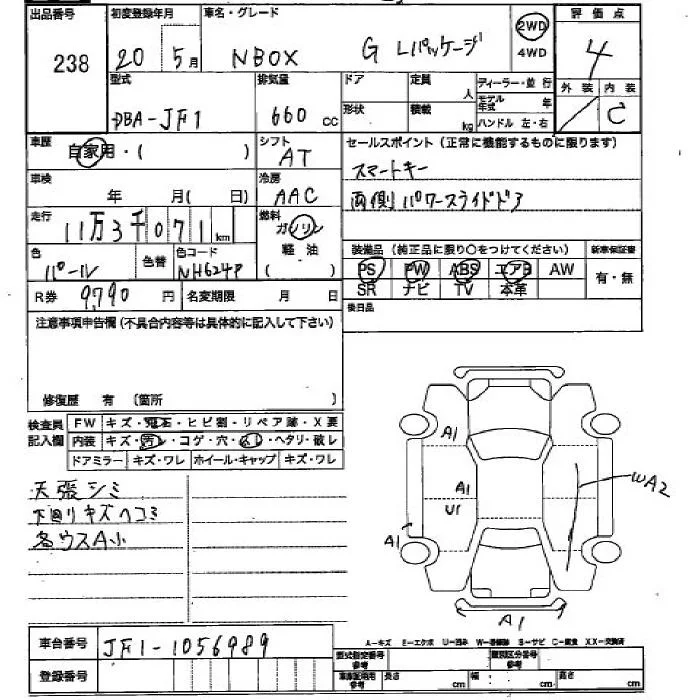 出品番号 初度登録年月 車名・グレード 評価点
238 20 5月 NBOX G Lパッケージ 2WD 4WD 4
型式 排気量 ドア 定員 人 ディーラー・並行 外装 内装
DBA-JF1 660cc 形状 積載 kg モデル年式 年 C
ハンドル 左・右
車歴 自家用・( ) シフト AT セールスポイント(正常に機能するものに限ります)
スマートキー
車検 年 月( 日) 冷房 AAC 両側パワースライドドア
走行 11万3千071km 燃料 ガソリン 軽油 ( )
色 パール 色替 色コード NH624P
装備品(純正品に限り○をつけてください) 新車保証書
PS PW ABS エアB AW 有・無
SR ナビ TV 本革
R券 9,790円 名変期限 月 日 後日品
注意事項申告欄(不具合内容等は具体的に記入して下さい)
修復歴 有(箇所 )
検査員記入欄 FW キズ・飛石・ヒビ割・リペア跡・X要
内装 キズ・汚レ・コゲ・穴・スレ・ヘタリ・破レ
ドアミラー キズ・ワレ ホイール・キャップ キズ・ワレ
天張シミ
下回りキズヘコミ
各ウスA小
A1
A1
U1
WA2
A1
A1
車台番号 JF1-1056989
A-キズ E-エクボ U-凹み W-補修跡 S-サビ C-腐食 XX-交換済
登録番号 型式指定番号 参考 類別区分番号 参考
車庫証明用 参考 長さ cm 幅 cm 高さ cm